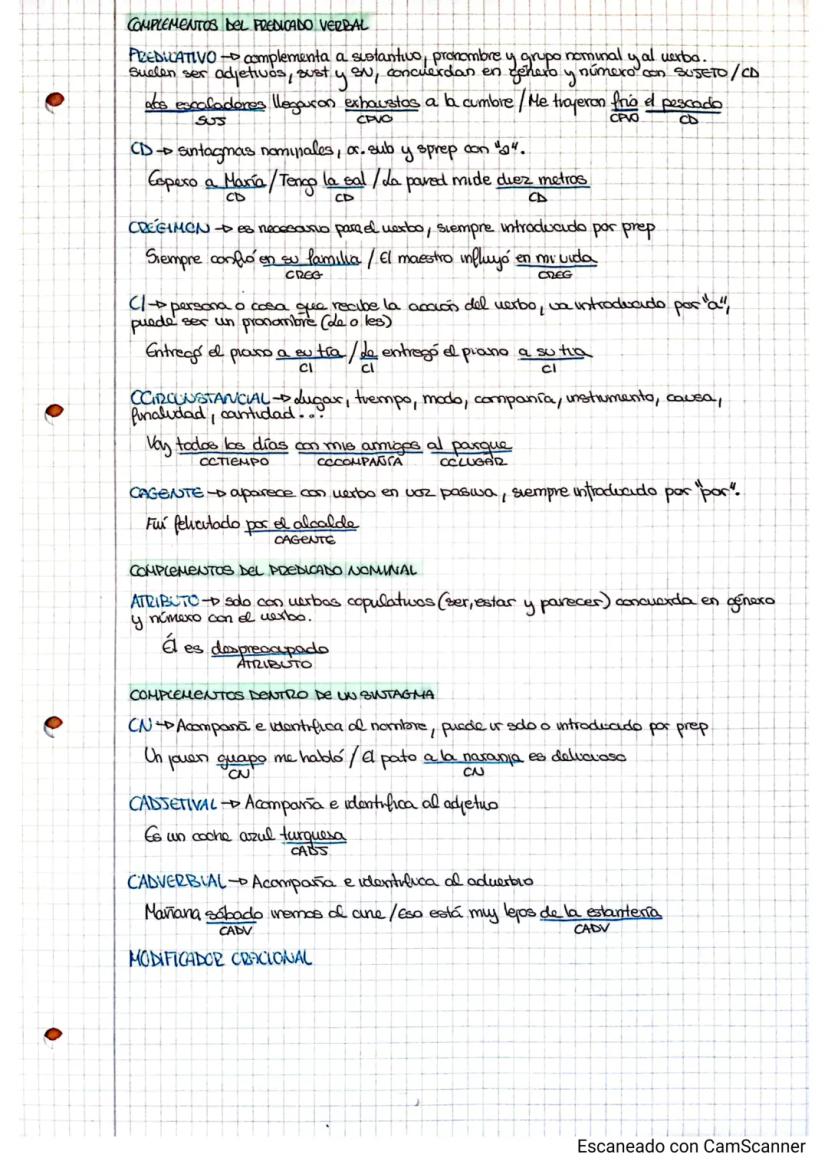 COMPLEMENTOS DEL PREDICADO VERBAL
PREDICATIVO → complementa a sustantivo, pronombre y grupo nominal y al verbo.
Suelen ser adjetivos, sust y SN, concuerdan en género y número con SUJETO / CD
Los escaladores llegaron exhaustos a la cumbre / Me trajeron frío el pescado
SUJ CPVO CPVO CD
CD → sintagmas nominales, or. sub y sprep con "a".
Espero a María / Tengo la sal / La pared mide diez metros
CD CD CD
CRÉGIMEN → es necesario para el verbo, siempre introducido por prep
Siempre confió en su familia / El maestro influyó en mi vida
CREG CREG
CI → persona o cosa que recibe la acción del verbo, va introducido por "a",
puede ser un pronombre (le o les)
Entregó el piano a su tía / Le entregó el piano a su tía
CI CI CI
CCIRCUNSTANCIAL → Lugar, tiempo, modo, compañía, instrumento, causa,
finalidad, cantidad...
Voy todos los días con mis amigos al parque
CCTIEMPO CCCOMPAÑÍA CCLUGAR
CAGENTE → aparece con verbo en voz pasiva, siempre introducido por "por".
Fui felicitado por el alcalde
CAGENTE
COMPLEMENTOS DEL PREDICADO NOMINAL
ATRIBUTO → solo con verbos copulativos (ser, estar y parecer) concuerda en género
y número con el verbo.
Él es despreocupado
ATRIBUTO
COMPLEMENTOS DENTRO DE UN SINTAGMA
CN → Acompaña e identifica al nombre, puede ir solo o introducido por prep
Un joven guapo me habló / El pato a la naranja es delicioso
CN CN
CADJETIVAL → Acompaña e identifica al adjetivo
Es un coche azul turquesa
CADJ
CADVERBIAL → Acompaña e identifica al adverbio
Mañana sábado iremos al cine / Eso está muy lejos de la estantería
CADV CADV
MODIFICADOR ORACIONAL
Escaneado con CamScanner